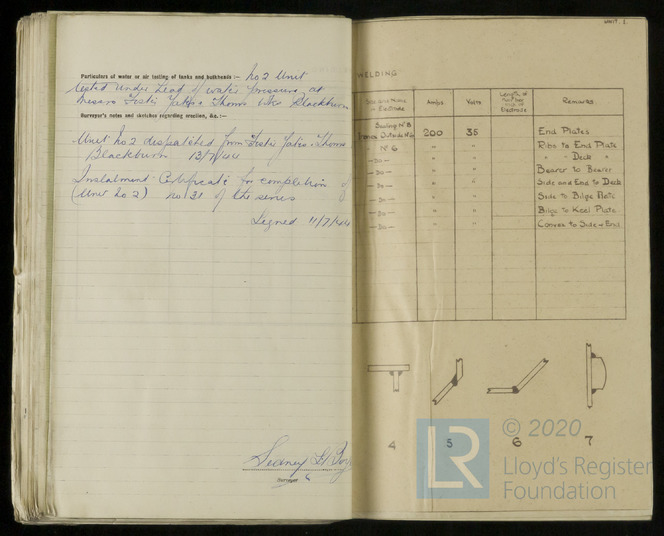 Particulars of water or air testing of tanks and bulkheads :— No 2 Unit
tested under head of water pressure, at
Messrs Foster Yates & Thoms Ltd Blackburn
Surveyor's notes and sketches regarding erection, &c. :—
Unit No 2 despatched from Foster Yates & Thoms
Blackburn 13/7/44
Instalment Certificate for completion of
(Unit No 2) no 31 of the series
Signed 11/7/44
Sidney
Surveyor
UNIT. 1.
WELDING
Electrode Amps Volts Length of Electrode Remarks
N° 6 200 35 End Plates
N° 6 " " Ribs to End Plate
—Do— " " " " Deck "
—Do— " " Bearer to Bearer
—Do— " " Side and End to Deck
—Do— " " Side to Bilge Plate
—Do— " " Bilge to Keel Plate
—Do— " " Convex to Side & End
4 5 6 7
LR © 2020
Lloyd's Register
Foundation